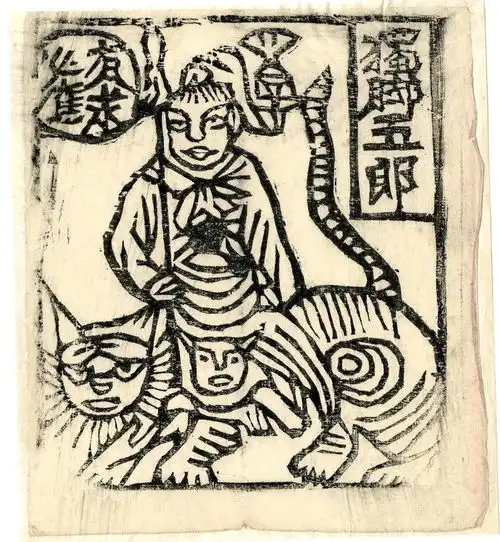 獨脚五郎
有求
必應